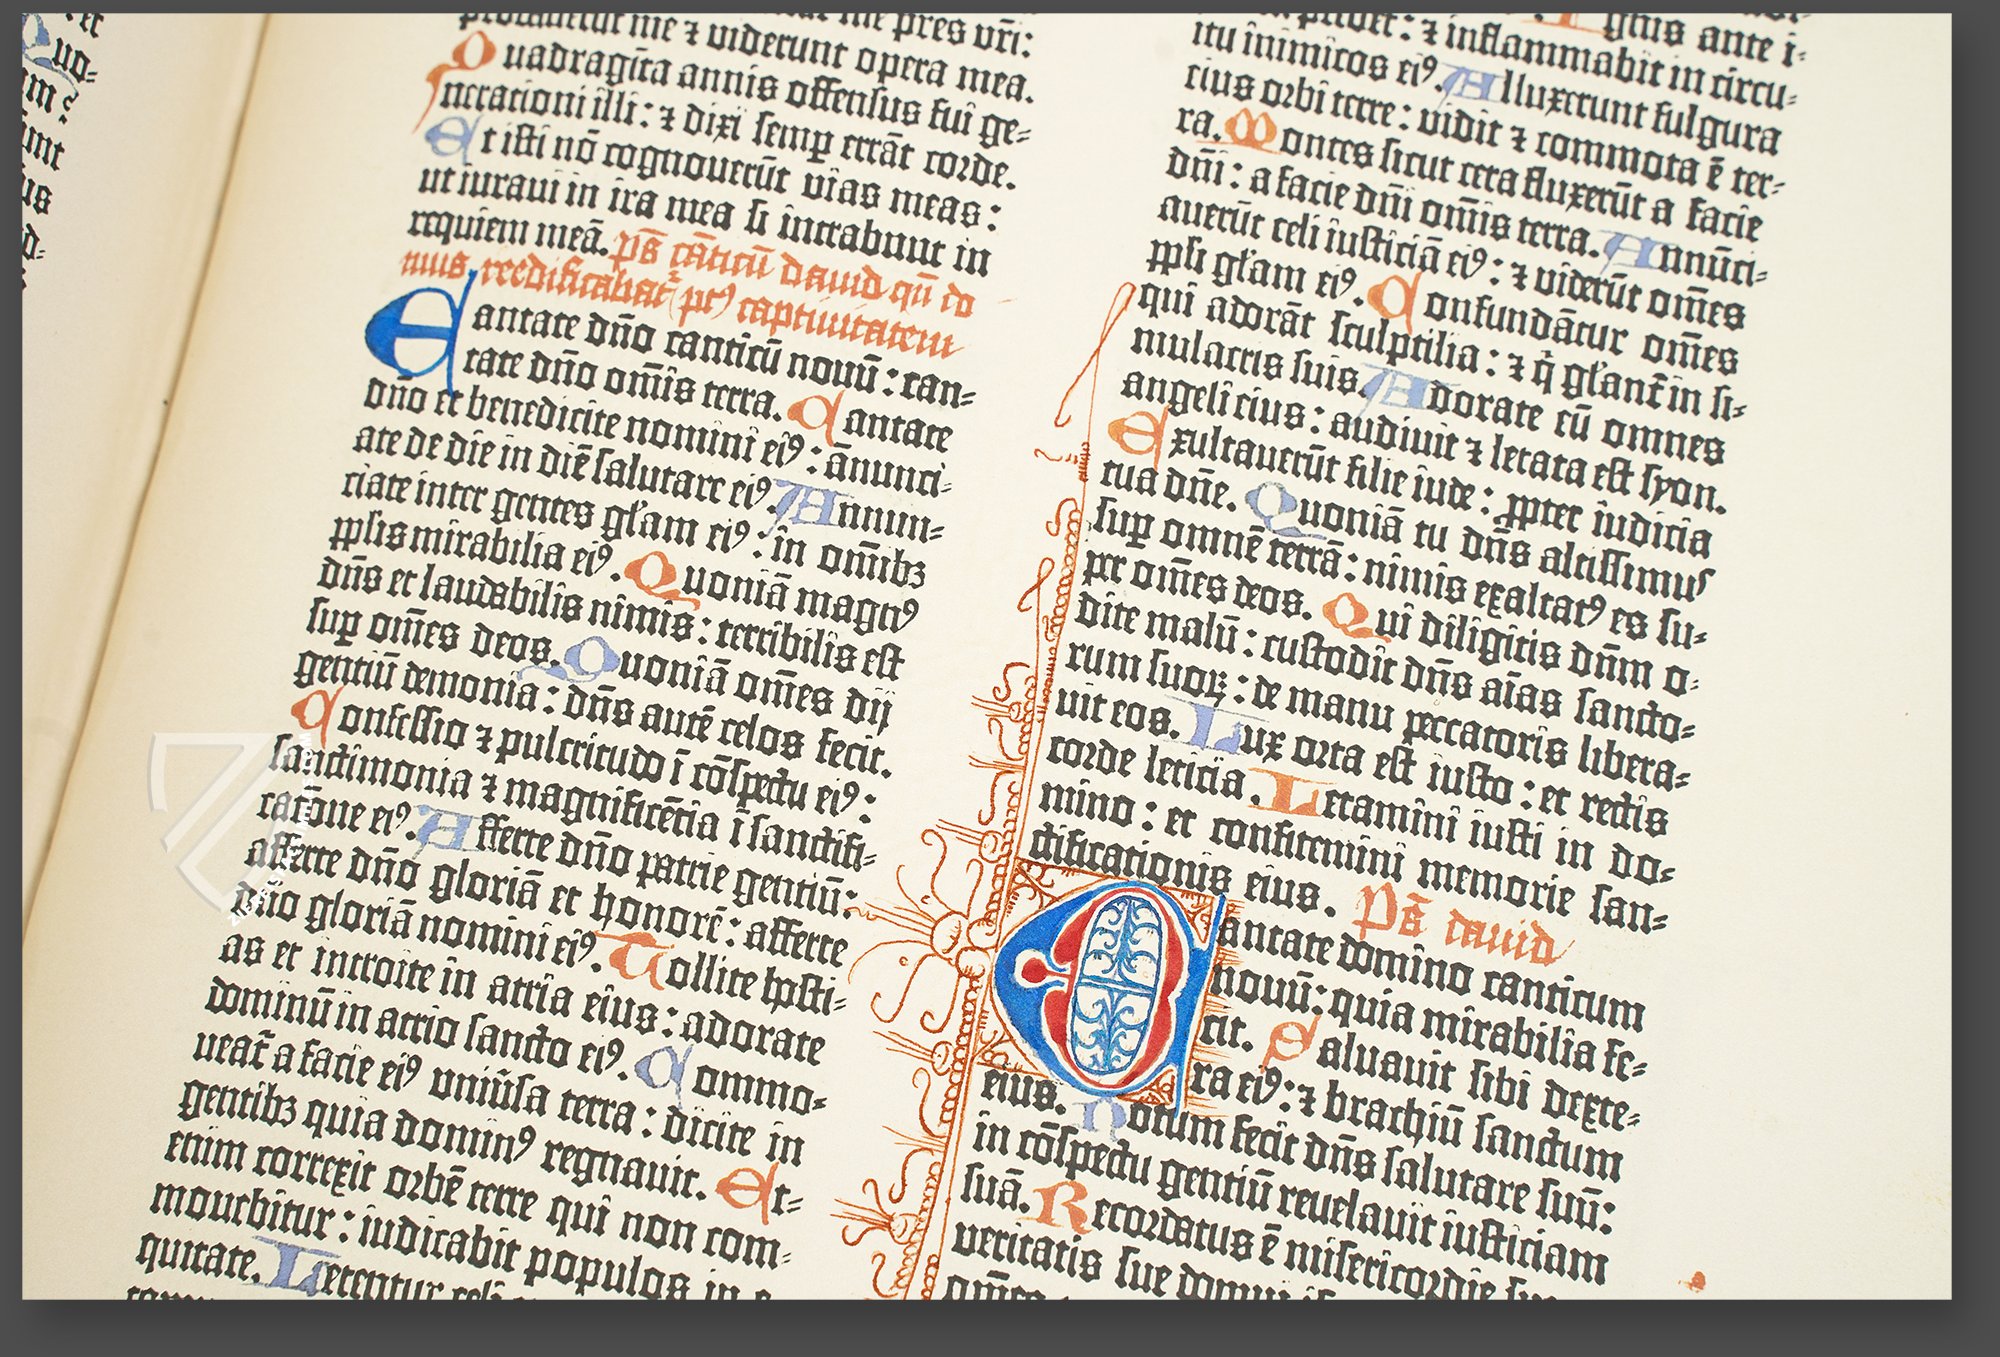 et
Quo-
probauerūt me ⁊ viderunt opera mea.
Quadragīta annis offensus fui ge-
nerationi illi: ⁊ dixi semꝑ errāt corde.
Et isti nō cognouerūt vias meas:
ut iuraui in ira mea si intrabunt in
requiem meā. ps̄ cāticū dauid qn̄ do
mus reedificabat᷑ pꝰ captiuitatem
Cantate dn̄o canticū nouū: can-
tate dn̄o om̄is terra. Cantate
dn̄o et benedicite nomini eiꝰ: ānunci-
ate de die in diē salutare eiꝰ. Annun-
ciate inter gentes gl'am eiꝰ: in om̄ibꝫ
ppl̄is mirabilia eiꝰ. Quoniā magnꝰ
dn̄s et laudabilis nimis: terribilis est
suꝑ om̄es deos. Quoniā om̄es dij
gentiū demonia: dn̄s autē celos fecit.
Confessio ⁊ pulcritudo ī cōspectu eiꝰ:
sanctimonia ⁊ magnificētia ī sanctifi-
catōne eiꝰ. Afferte dn̄o patrie gentiū:
afferte dn̄o gloriā et honorē: afferte
dn̄o gloriā nomini eiꝰ. Tollite hosti-
as et introite in atria eius: adorate
dominū in atrio sancto eiꝰ. Commo-
ueat᷑ a facie eiꝰ uniūsa terra: dicite in
gentibꝫ quia dominꝰ regnauit. Et-
enim correxit orbē terre qui non com-
mouebitur: iudicabit populos in e-
quitate. Letentur celi
⁊ inflammabit in circu-
itu inimicos eiꝰ. Alluxerunt fulgura
eius orbi terre: vidit ⁊ commota ē ter-
ra. Montes sicut cera fluxerūt a facie
dn̄i: a facie dn̄i om̄is terra. Annūci-
auerūt celi iusticiā eiꝰ: ⁊ viderūt om̄es
ppl̄i gl'am eiꝰ. Confundātur om̄es
qui adorāt sculptilia: ⁊ q̇ gl'ant᷑ in si-
mulacris suis. Adorate eū omnes
angeli eius: audiuit ⁊ letata est syon.
Exultauerūt filie iude: ꝓpter iudicia
tua dn̄e. Quoniā tu dn̄s altissimus
suꝑ omnē terrā: nimis exaltatꝰ es su-
per om̄es deos. Qui diligitis dn̄m o-
dite malū: custodit dn̄s aīas sancto-
rum suoꝝ: de manu peccatoris libera-
uit eos. Lux orta est iusto: et rectis
corde leticia. Letamini iusti in do-
mino: et confitemini memorie san-
ctificationis eius. Ps̄ dauid
Cantate domino canticum
nouū: quia mirabilia fe-
cit. Saluauit sibi dexte-
ra eiꝰ: ⁊ brachiū sanctum
eius. Notum fecit dn̄s salutare suū:
in cōspectu gentiū reuelauit iusticiam
suā. Recordatus ē misericordie
veritatis sue domui
om̄es